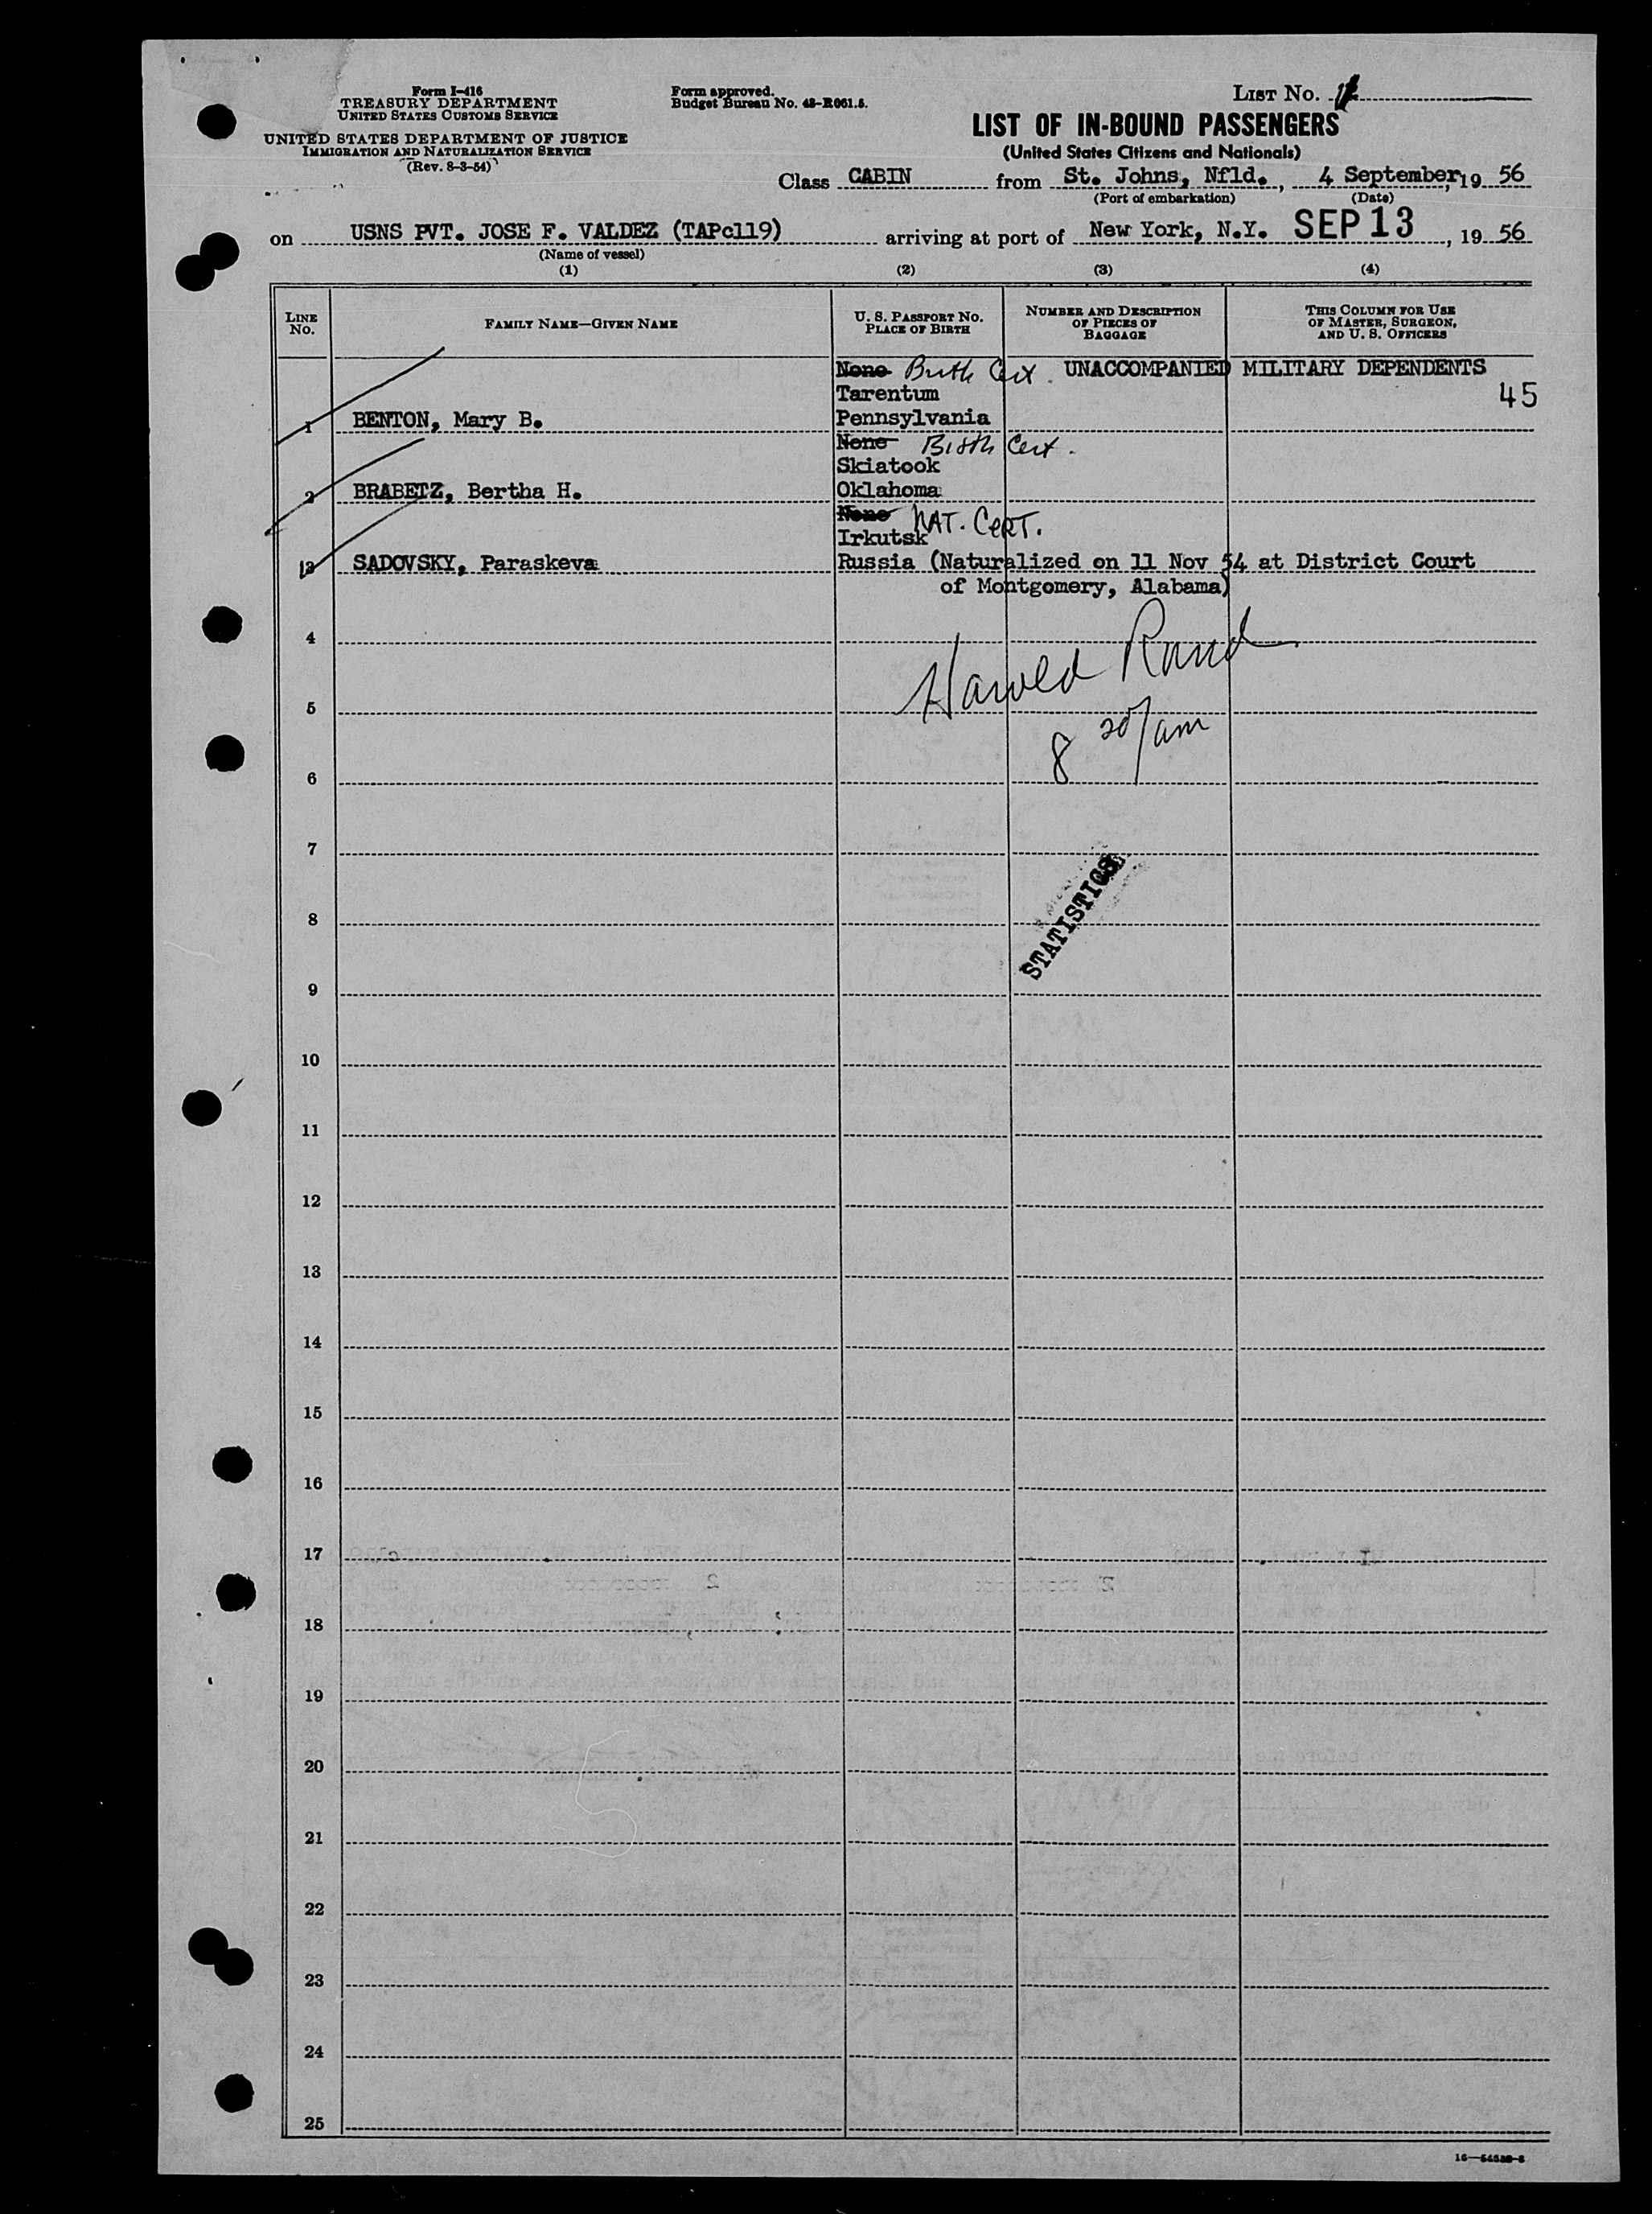 Form I-416
TREASURY DEPARTMENT
UNITED STATES CUSTOMS SERVICE
UNITED STATES DEPARTMENT OF JUSTICE
IMMIGRATION AND NATURALIZATION SERVICE
(Rev. 8-3-54)
Form approved.
Budget Bureau No. 43-R061.5.
LIST NO.
LIST OF IN-BOUND PASSENGERS
(United States Citizens and Nationals)
Class CABIN from St. Johns, Nfld., 4 September, 19 56
(Port of embarkation) (Date)
on USNS PVT. JOSE F. VALDEZ (TAPc119) arriving at port of New York, N.Y. SEP 13, 19 56
(Name of vessel)
(1) (2) (3) (4)
LINE NO. FAMILY NAME—GIVEN NAME U. S. PASSPORT NO. PLACE OF BIRTH NUMBER AND DESCRIPTION OF PIECES OF BAGGAGE THIS COLUMN FOR USE OF MASTER, SURGEON, AND U. S. OFFICERS
None Birth Cert. UNACCOMPANIED MILITARY DEPENDENTS
Tarentum 45
1 BENTON, Mary B. Pennsylvania
None Birth Cert.
Skiatook
2 BRABETZ, Bertha H. Oklahoma
None NAT. CERT.
Irkutsk
3 SADOVSKY, Paraskeva Russia (Naturalized on 11 Nov 54 at District Court
of Montgomery, Alabama)
4
Harold Rand
5
8 20/am
6
7
STATISTICS
8
9
10
11
12
13
14
15
16
17
18
19
20
21
22
23
24
25